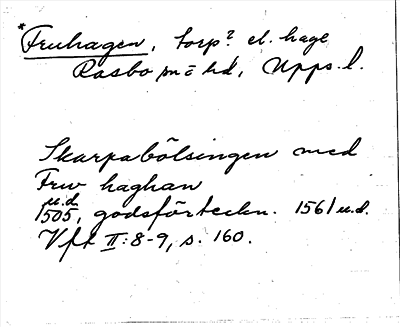 *Fruhagen, torp? el. hage
Rasbo sn o hd, Upps. l.
Skarpabölsingen med
Frw haghan
u.d.
1505, godsförteckn. 1561 u.d.
Vft II:8-9, s. 160.